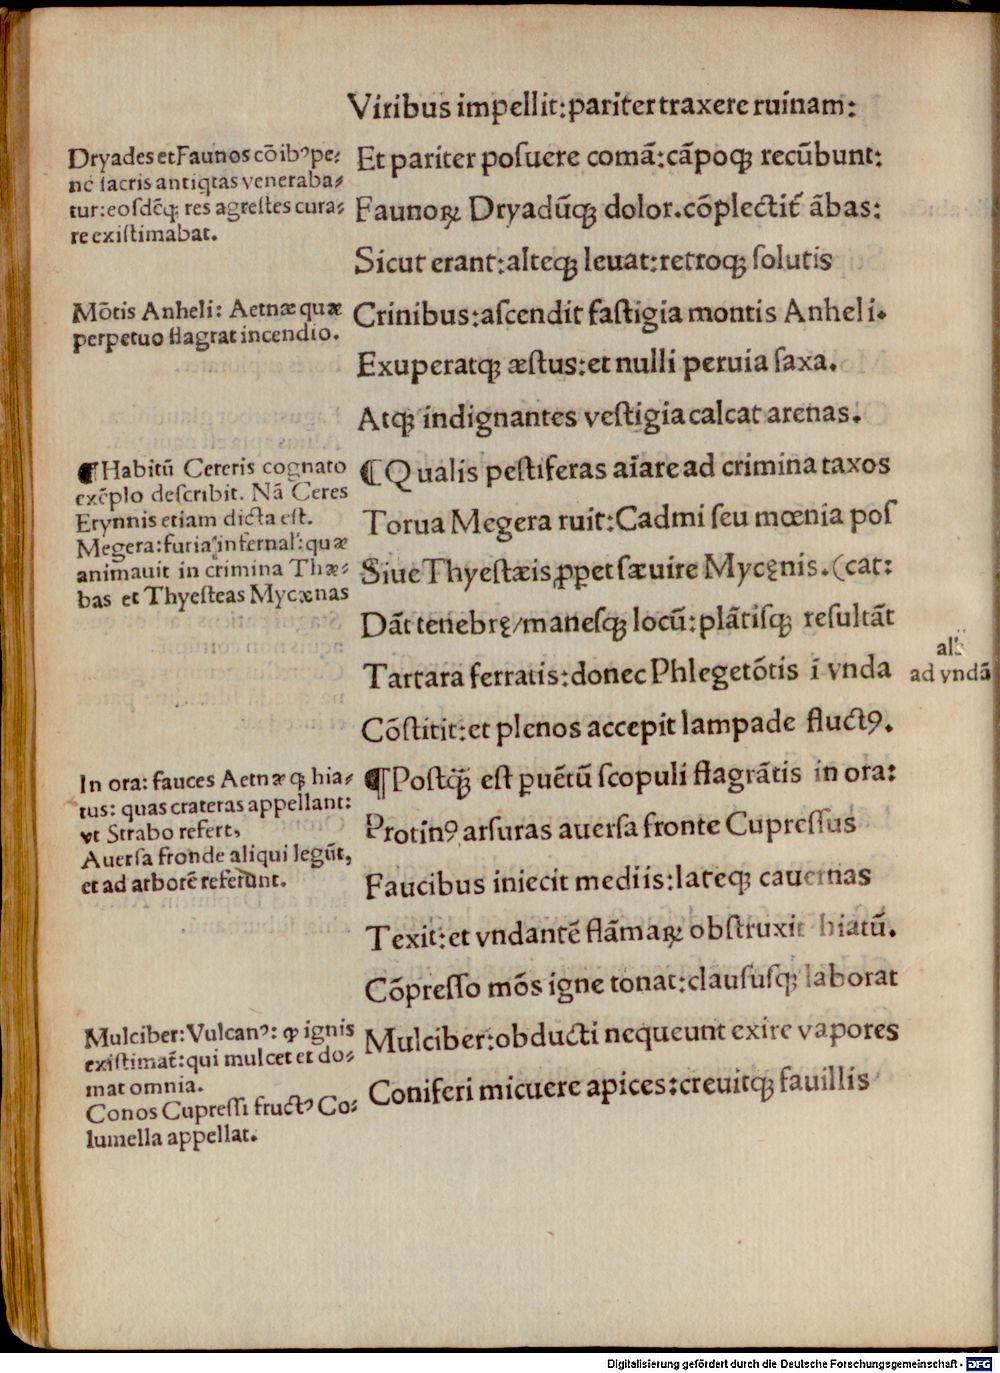 Viribus impellit:pariter traxere ruinam:
Et pariter poſuere comā:cāpoqꝫ recūbunt:
Faunoꝝ Dryadūqꝫ dolor.cōplectit᷑ ābas:
Sicut erant:alteqꝫ leuat:retroqꝫ ſolutis
Crinibus:aſcendit faſtigia montis Anheli.
Exuperatqꝫ æſtus:et nulli peruia ſaxa.
Atqꝫ indignantes veſtigia calcat arenas.
¶Qualis peſtiferas aīare ad crimina taxos
Torua Megera ruit:Cadmi ſeu mœnia poſ
Siue Thyeſtæis ꝓꝑet ſæuire Mycęnis.(cat:
Dāt tenebrę/maneſqꝫ locū:plātiſqꝫ reſultāt
Tartara ferratis:donec Phlegetōtis ī vnda
Cōſtitit:et plenos accepit lampade fluctꝰ.
¶Poſtꝙ̄ eſt ꝑuētū ſcopuli flagrātis in ora:
Protinꝰ arſuras auerſa fronte Cupreſſus
Faucibus iniecit mediis:lateqꝫ cauernas
Texit:et vndantē flāmaꝝ obſtruxit hiatū.
Cōpreſſo mōs igne tonat:clauſuſqꝫ laborat
Mulciber:obducti nequeunt exire vapores
Coniferi micuere apices:creuitqꝫ fauillis
Dryades et Faunos cōibꝰ pe:
ne ſacris antiqtas veneraba⸗
tur:eoſdēqꝫ res agreſtes cura⸗
re exiſtimabat.
Mōtis Anheli: Aetnæ quæ
perpetuo flagrat incendio.
¶Habitū Cereris cognato
exēplo deſcribit. Nā Ceres
Erynnis etiam dicta eſt.
Megera:furia infernal':quæ
animauit in crimina Thæ⸗
bas et Thyeſteas Mycænas
al's
ad vndā
In ora: fauces Aetnæ qꝫ hia⸗
tus: quas crateras appellant:
vt Strabo refert,
Auerſa fronde aliqui legūt,
et ad arborē referunt.
Mulciber:Vulcanꝰ: ꝙ ignis
exiſtimat᷑:qui mulcet et do⸗
mat omnia.
Conos Cupreſſi fructꝰ Co⸗
lumella appellat.
Digitalisierung gefördert durch die Deutsche Forschungsgemeinschaft - DFG